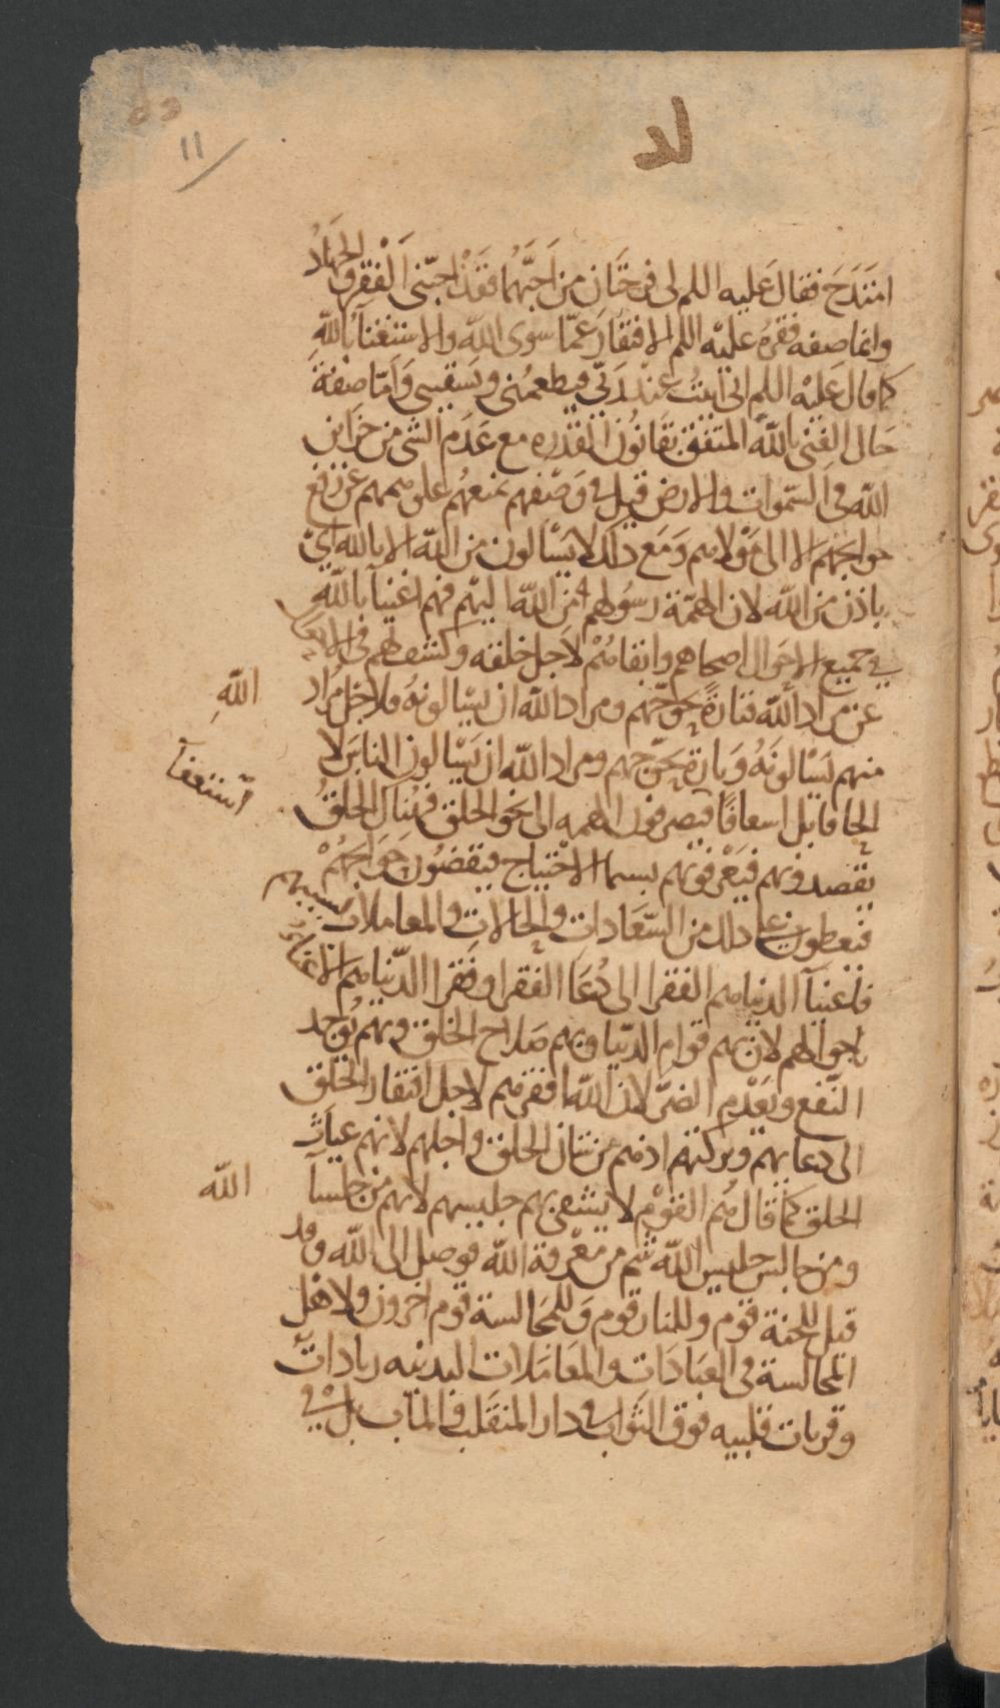 لد
11
امتدح فقال عليه اللم لى فرحتان من احبهما فقد احبنى الفقر والجهاد
وانما صفه فقره عليه اللم الافتقار عما سوى الله والاستغنآ بالله
كما قال عليه اللم انى ابيت عند ربى فيطعمنى ويسقينى واما صفة
حال الغنى بالله المتفق بقانون القدره مع عدم الشى من خزاين
الله فى السموات والارض قيل فى وصفهم تمنعهم علو هممهم عن رفع
حوايجهم الا الى مولاهم ومع ذلك لا يسالون من الله الا بالله اى
باذن من الله لان الهمة رسولهم من الله اليهم فهم اغنيآ بالله
فى جميع الاحوال اصحاهم وابقاهم لاجل خلقه وكشف لهم فى
عن مراد الله فتارة يحوجهم ومراد الله ان يسالونه فلاجل مراد
الله
منهم يسالونه وتارة يحوجهم ومراد الله ان يسالون الناس لا
الحافا بل اسعافا فيصرفون الهمه الى نحو الخلق فينال الخلق
استعفآ
بقصدونهم فيعرفونهم بسيما الاحتياج فيقضون حوايجهم
فيعطون على ذلك من السعادات والحالات والمعاملات بسببهم
فاغنيآ الدنيا هم الفقرا الى دعآ الفقرا وفقرا الدنيا هم الاغنيآ
باحوالهم لان بهم قوام الدنيا وبهم صلاح الخلق وبهم يوجد
النفع ويعدم الضر لان الله افقرهم لاجل افتقار الخلق
الى دعايهم وبركتهم اذ هم من شان الخلق واجلهم لانهم غياث
الخلق كما قال هم القوم لا يشقى بهم جليسهم لانهم من جلسآ
الله
ومن جالس جليس الله شم من معرفة الله فوصل الى الله وقد
قيل للجنة قوم وللنار قوم وللمجالسة قوم اخرون ولاهل
المجالسة فى العبادات والمعاملات البدنيه زيادات
وقربات قلبيه فوق الثواب فى دار المنقلب والماب بل فى